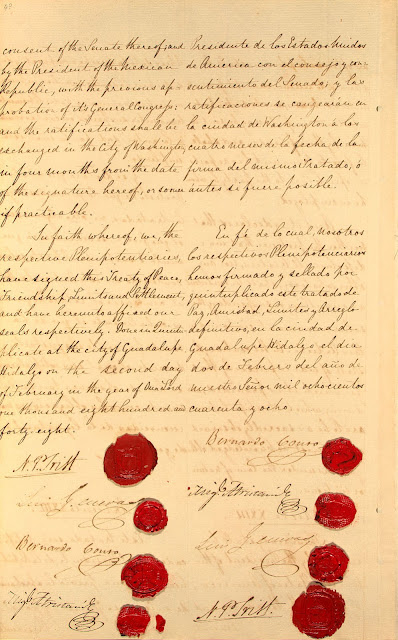 63
consent of the Senate thereof; and
by the President of the Mexican
Republic, with the previous ap-
probation of its General Congress:
and the ratifications shall be
exchanged in the City of Washington,
in four months from the date
of the signature hereof, or sooner
if practicable.
In faith whereof, we, the
respective Plenipotentiaries,
have signed this Treaty of Peace,
Friendship, Limits and Settlement,
and have hereunto affixed our
seals respectively. Done in Quintu-
plicate at the city of Guadalupe
Hidalgo on the second day
of February in the year of Our Lord
one thousand eight hundred and
forty-eight.
N. P. Trist
Luis G. Cuevas
Bernardo Couto
Migl. Atristain
Presidente de los Estados Unidos
de América con el consejo y con-
sentimiento del Senado; y las
ratificaciones se cangearán en
la ciudad de Washington a los
cuatro meses de la fecha de la
firma del mismo Tratado, ó
antes si fuere posible.
En fé de lo cual, nosotros
los respectivos Plenipotenciarios
hemos firmado y sellado por
quintuplicado este tratado de
Paz, Amistad, Límites y Arreglo
definitivo, en la ciudad de
Guadalupe Hidalgo el día
dos de Febrero del año de
nuestro Señor mil ochocientos
cuarenta y ocho.
Bernardo Couto
Migl. Atristain
Luis G. Cuevas
N. P. Trist